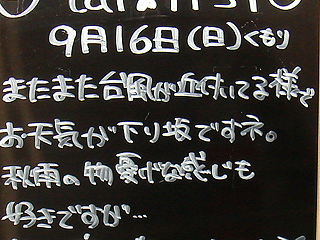 9月16日(日)くもり
またまた台風が近付いてる様で
お天気が下り坂ですネ。
秋雨の物憂げな感じも
好きですが…